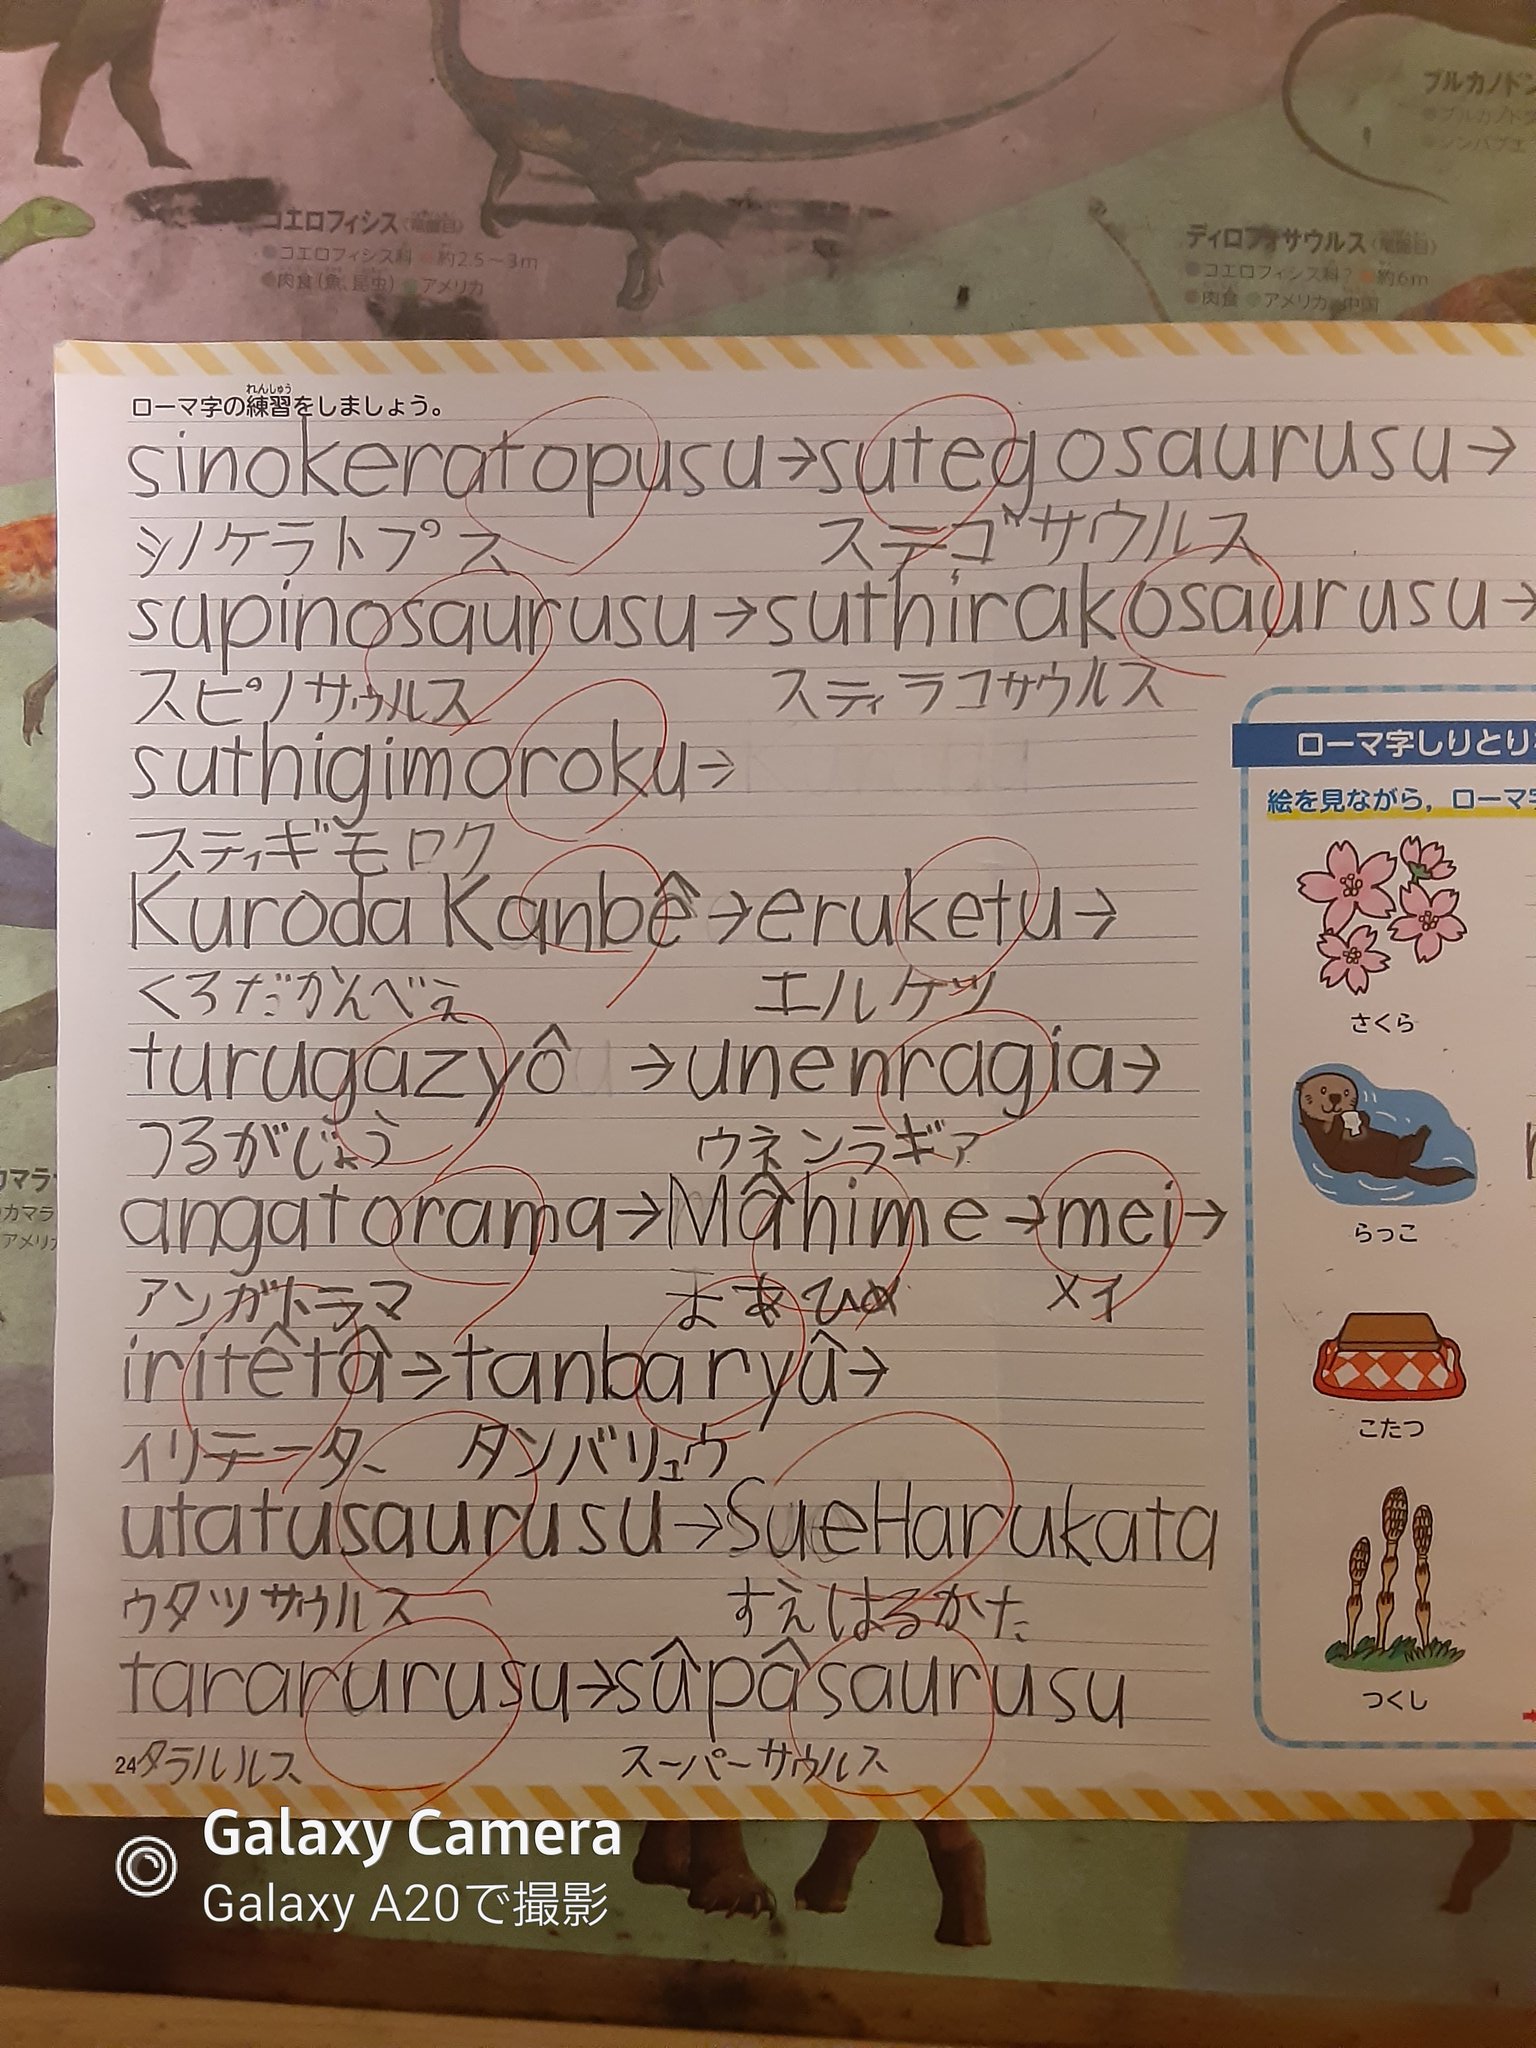 ブルカノドン
コエロフィシス
コエロフィシス科 約2.5~3m
肉食(魚、昆虫) アメリカ
ディロフォサウルス
コエロフィシス科? 約6m
肉食 アメリカ 中国
れんしゅう
ローマ字の練習をしましょう。
sinokeratopusu→sutegosaurusu→
シノケラトプス ステゴサウルス
supinosaurusu→suthirakosaurusu→
スピノサウルス スティラコサウルス
suthigimoroku→
スティギモロク
Kuroda Kanbê→eruketu→
くろだかんべえ エルケツ
turugazyô→unenragia→
つるがじょう ウネンラギア
angatorama→Mâhime→mei→
アンガトラマ まあひめ メイ
iritêtâ→tanbaryû→
イリテータ タンバリュウ
utatusaurusu→SueHarukata
ウタツサウルス すえはるかた
tararurusu→sûpâsaurusu
24 タラルルス スーパーサウルス
ローマ字しりとり
絵を見ながら,ローマ字
さくら
らっこ
こたつ
つくし
カマラ
アメリカ
Galaxy Camera
Galaxy A20で撮影